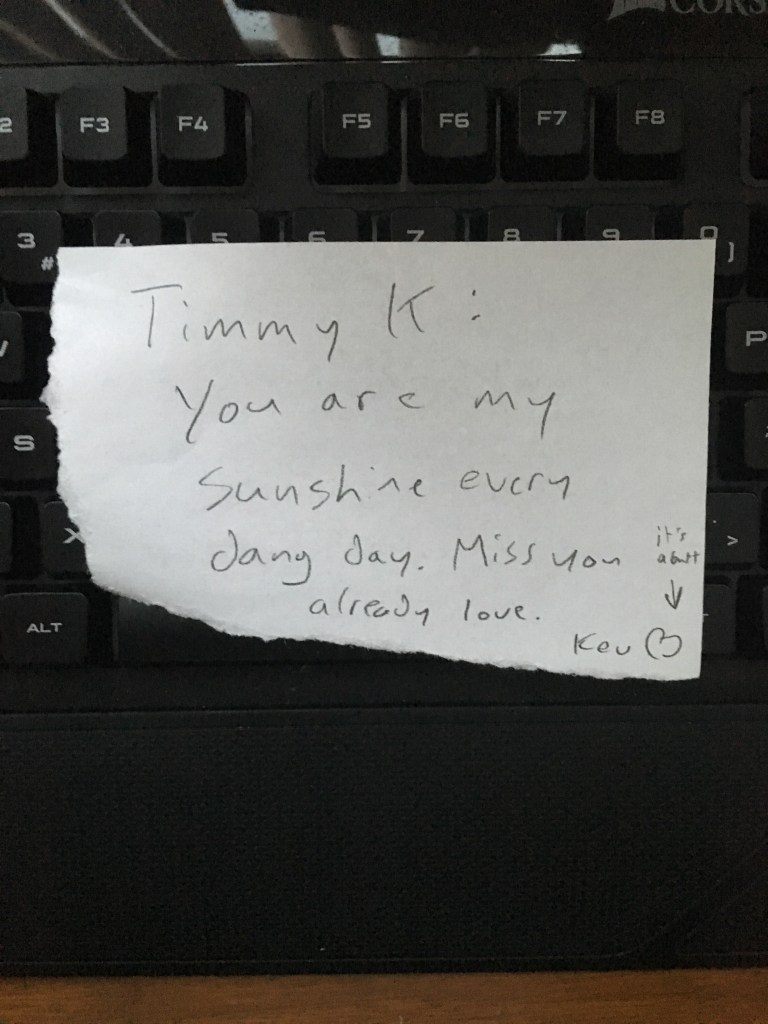 CORS
2 F3 F4 F5 F6 F7 F8
3 4 5 6 7 8 9 0
# )
Timmy K:
P
You are my
S
sunshine every
X
it's
>
dang day. Miss you
a butt
already love.
ALT
Kev